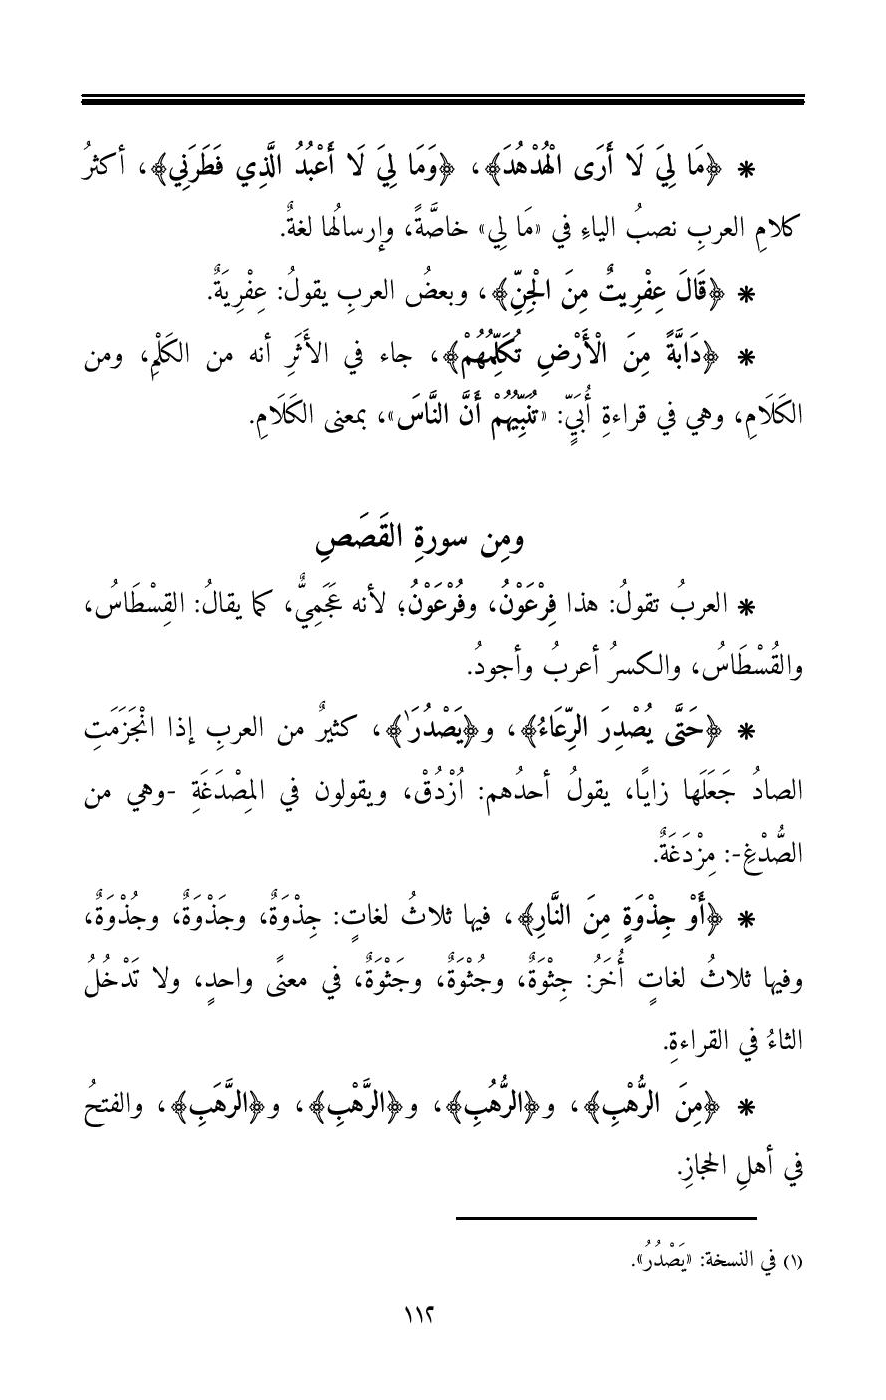 * ﴿مَا لِيَ لَا أَرَى الْهُدْهُدَ﴾، ﴿وَمَا لِيَ لَا أَعْبُدُ الَّذِي فَطَرَنِي﴾، أكثرُ
كلامِ العربِ نصبُ الياءِ في «مَا لِي» خاصَّةً، وإرسالُها لغةٌ.
* ﴿قَالَ عِفْرِيتٌ مِنَ الْجِنِّ﴾، وبعضُ العربِ يقولُ: عِفْرِيَةٌ.
* ﴿دَابَّةً مِنَ الْأَرْضِ تُكَلِّمُهُمْ﴾، جاء في الأَثَرِ أنه من الكَلْمِ، ومن
الكَلَامِ، وهي في قراءةِ أُبَيٍّ: «تُنَبِّيُهُمْ أَنَّ النَّاسَ»، بمعنى الكَلَامِ.
ومِن سورةِ القَصَصِ
* العربُ تقولُ: هذا فِرْعَوْنُ، وفُرْعَوْنُ؛ لأنه عَجَمِيٌّ، كما يقالُ: القِسْطَاسُ،
والقُسْطَاسُ، والكسرُ أعربُ وأجودُ.
* ﴿حَتَّى يُصْدِرَ الرِّعَاءُ﴾، و﴿يَصْدُرَ(١)﴾، كثيرٌ من العربِ إذا انْجَزَمَتِ
الصادُ جَعَلَها زايًا، يقولُ أحدُهم: اُزْدُقْ، ويقولون في المِصْدَغَةِ -وهي من
الصُّدْغِ-: مِزْدَغَةٌ.
* ﴿أَوْ جِذْوَةٍ مِنَ النَّارِ﴾، فيها ثلاثُ لغاتٍ: جِذْوَةٌ، وجَذْوَةٌ، وجُذْوَةٌ،
وفيها ثلاثُ لغاتٍ أُخَرُ: جِثْوَةٌ، وجُثْوَةٌ، وجَثْوَةٌ، في معنًى واحدٍ، ولا تَدْخُلُ
الثاءُ في القراءةِ.
* ﴿مِنَ الرُّهْبِ﴾، و﴿الرُّهُبِ﴾، و﴿الرَّهْبِ﴾، و﴿الرَّهَبِ﴾، والفتحُ
في أهلِ الحجازِ.
(١) في النسخة: «يَصْدُرُ».
١١٢